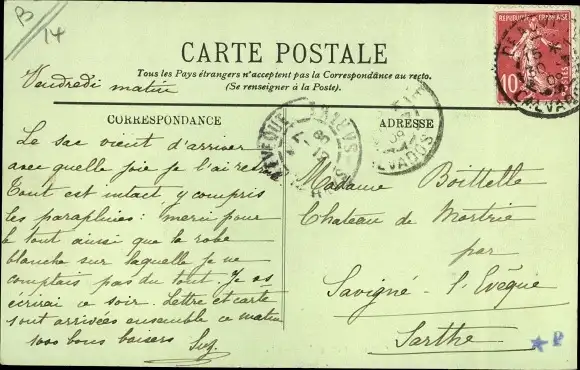 B
14
CARTE POSTALE
Tous les Pays étrangers n'acceptent pas la Correspondance au recto.
(Se renseigner à la Poste).
Vendredi matin
CORRESPONDANCE
ADRESSE
REPUBLIQUE FRANÇAISE
10
POSTES
CALVADOS
Le sac vient d'arriver
avec quelle joie je l'ai
Tout est intact, y compris
les parapluies : merci pour
le tout ainsi que la robe
blanche sur laquelle je ne
comptais pas du tout Je
écrirai ce soir. Lettre et carte
sont arrivées ensemble ce matin
1000 bons baisers
Suz.
Madame Boittelle
Chateau de Mortrie
par
Savigné-l'Evêque
Sarthe